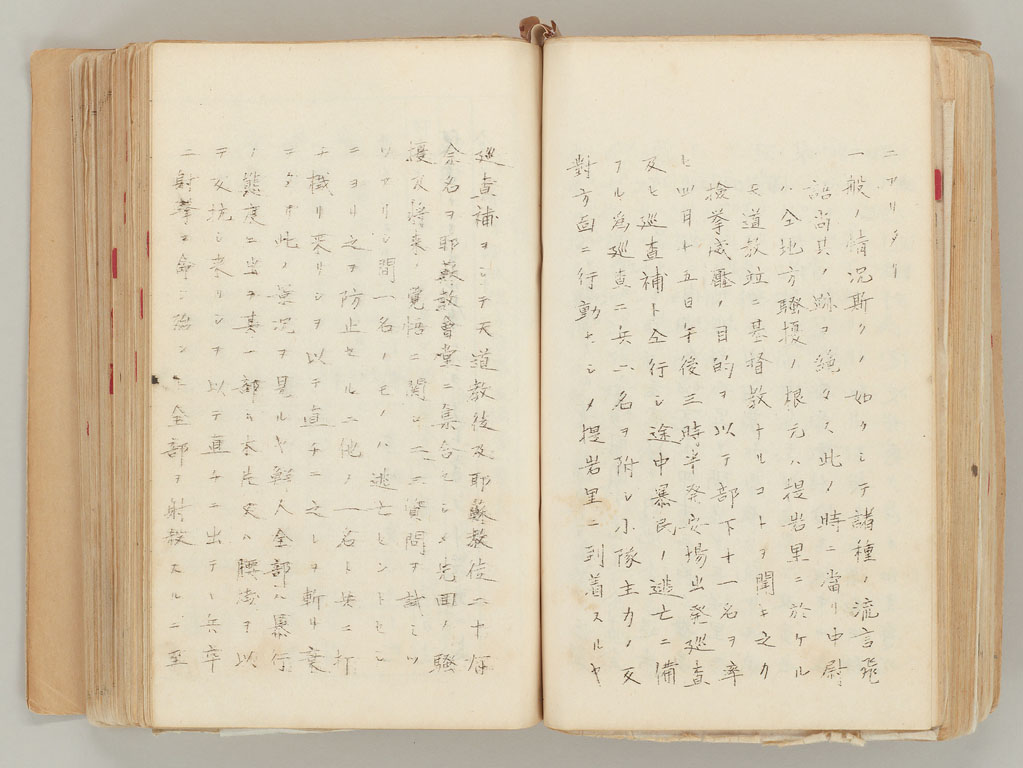 ニアリタリ
一般ノ情況斯クノ如クシテ諸種ノ流言飛
語尚其ノ跡ヲ絶タス此ノ時ニ當リ中尉
ハ全地方騒擾ノ根元ハ提岩里ニ於ケル
天道教竝ニ基督教ナルコトヲ聞キ之カ
檢挙威壓ノ目的ヲ以テ部下十一名ヲ率
ヒ四月十五日午後三時半発安場出発巡査
及ヒ巡査補ト仝行シ途中暴民ノ逃亡ニ備
アル為巡査ニ兵六名ヲ附シ小隊主力ノ反
對方面ニ行動セシメ提岩里ニ到着スルヤ
巡査補ヲシテ天道教徒及耶蘇教徒二十
余名ヲ耶蘇教會堂ニ集合セシメ先回ノ騒
擾及将来ノ覚悟ニ関シ二、三質問ヲ試ミツ
ツアリシ間一名ノモノハ逃亡セントセシ
ニヨリ之ヲ防止セルニ他ノ一名ト共ニ打
チ掛リ来リシヲ以テ直チニ之レヲ斬リ棄
テタリ此ノ景況ヲ見ルヤ鮮人全部ハ暴行
ノ態度ニ出テ其一部ハ木片又ハ腰掛ヲ以
テ反抗シ来リシヲ以テ直チニ出テ兵卒
ニ射撃ヲ命シ殆ント全部ヲ射殺スルニ至